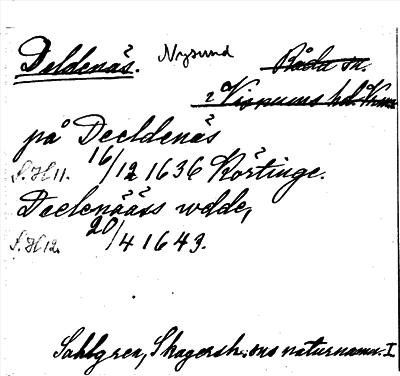 Deldenäs. Nysund Råda sn.
i Visnums hd. Vrml.
på Deeldenäs
S.H 11. 16/12 1636 Körtinge.
Deelenääss udde,
S.H 12. 20/4 1643.
Sahlgren, Skagersh:ens naturnamn. I